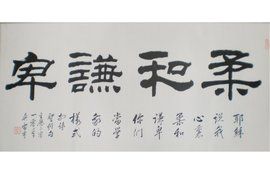 柔和謙卑
耶穌
说我
心裏
柔和
谦卑
你们
當学
我的
樣式